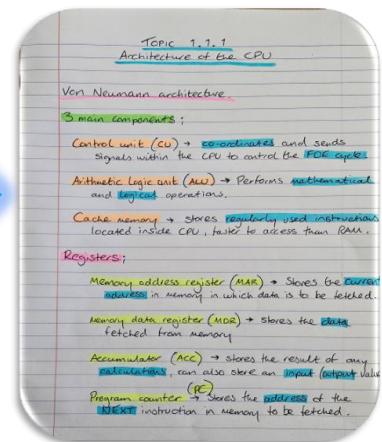 Topic 1.1.1
Architecture of the CPU
Von Neumann architecture.
3 main components;
Control unit (CU) → co-ordinates and sends
signals within the CPU to control the FDE cycle
Arithmetic Logic unit (ALU) → Performs mathematical
and logical operations.
Cache memory → stores regularly used instructions
located inside CPU, faster to access than RAM.
Registers;
Memory address register (MAR) → Stores the current
address in memory in which data is to be fetched.
Memory data register (MDR) → stores the data
fetched from memory
Accumulator (ACC) → stores the result of any
calculations, can also store an input/output value
(PC)
Program counter → Stores the address of the
NEXT instruction in memory to be fetched.